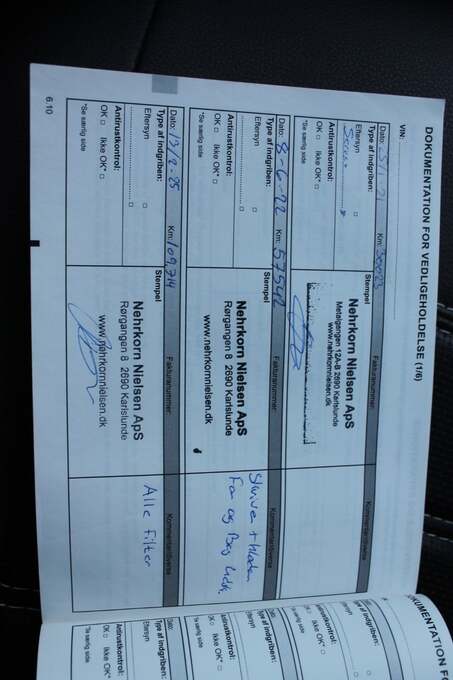 DOKUMENTATION FOR VEDLIGEHOLDELSE (1/6)
VIN:
Dato: Km: Fakturanummer: Kommentar/diverse
Type af indgriben: Stempel
Eftersyn □
Nehrkorn Nielsen ApS
Metalgangen 12A-B 2690 Karlslunde
www.nehrkornnielsen.dk
Antirustkontrol:
OK □ Ikke OK* □
*Se særlig side
Dato: 8-6-22 Km: 57542 Fakturanummer: Kommentar/diverse
Type af indgriben: Stempel
Eftersyn □
Nehrkorn Nielsen ApS
Rørgangen 8 2690 Karlslunde
www.nehrkornnielsen.dk
Antirustkontrol:
OK □ Ikke OK* □
*Se særlig side
For og Bag
Dato: 13/2-25 Km: 109,714 Fakturanummer: Kommentar/diverse
Type af indgriben: Stempel
Eftersyn □
Nehrkorn Nielsen ApS
Rørgangen 8 2690 Karlslunde
www.nehrkornnielsen.dk
Antirustkontrol:
OK □ Ikke OK* □
*Se særlig side
Alle filter
6.10
DOKUMENTATION FO
Dato:
Type af indgriben:
Eftersyn
Antirustkontrol:
OK □ Ikke OK* □
*Se særlig side
Dato:
Type af indgriben:
Eftersyn
Antirustkontrol:
OK □ Ikke OK* □
*Se særlig side